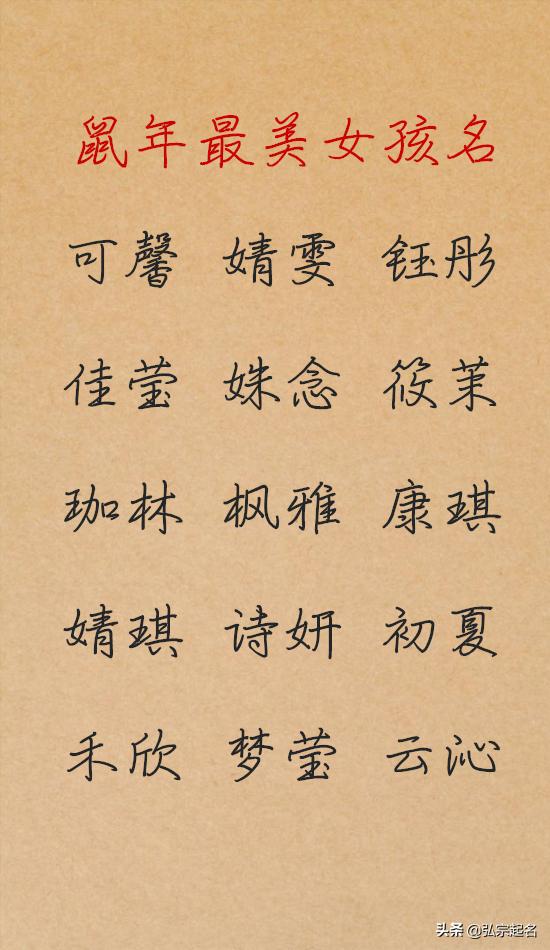 鼠年最美女孩名
可馨 婧雯 钰彤
佳莹 姝念 筱茉
珈林 枫雅 康琪
婧琪 诗妍 初夏
禾欣 梦莹 云沁
头条 @弘宗起名